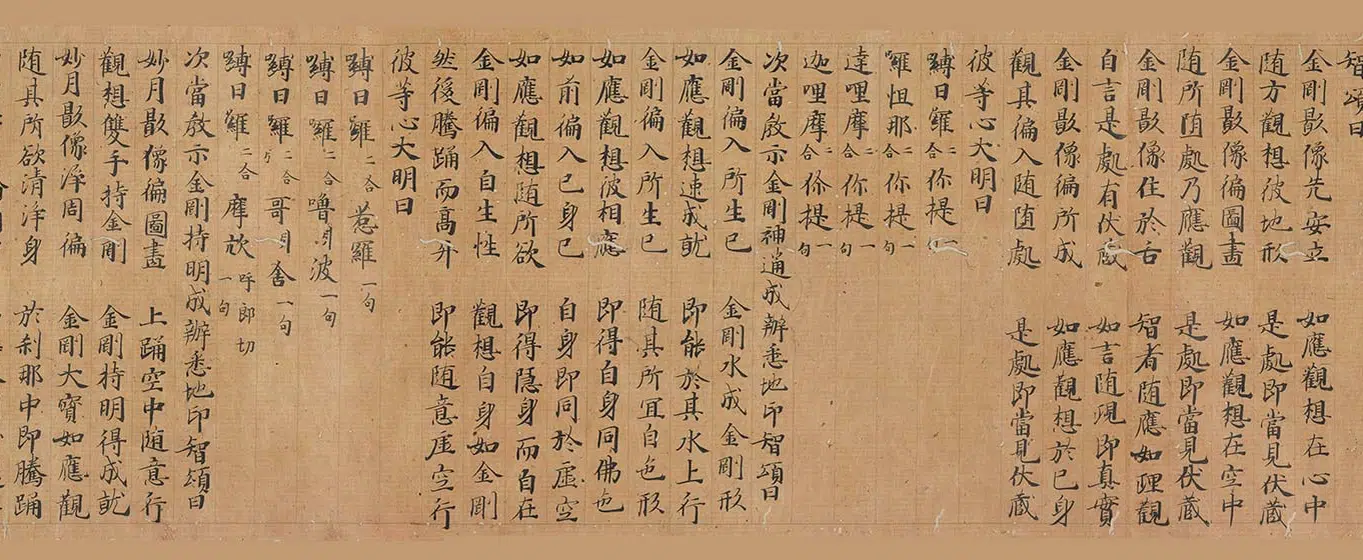 智頌曰
金剛影像先安立 如應觀想在心中
随方觀想彼地形 是處即當見伏蔵
金剛影像徧圖畫 如應觀想在空中
随所堕處乃應觀 是處即當見伏蔵
金剛影像住於舌 智者随應如理觀
自言是處有伏蔵 如言随現即真實
金剛影像徧所成 如應觀想於己身
觀其徧入随堕處 是處即當見伏蔵
彼等心大明曰
縛日囉二合你提一句
囉怛那二合你提一句
達哩摩二合你提一句
迦哩摩二合你提一句
次當教示金剛神通成辦悉地印智頌曰
金剛徧入所生已 金剛水成金剛形
如應觀想速成就 即能於其水上行
金剛徧入所生已 随其所冝自色形
如應觀想彼相應 即得自身同佛色
如前徧入已身已 自身即同於虛空
如應觀想随所欲 即得隱身而自在
金剛徧入自生性 觀想自身如金剛
然後騰踊而高升 即能随意虛空行
彼等心大明曰
縛日囉二合惹羅一句
縛日囉二合嚕波一句
縛日囉二合哥舍一句
縛日囉二合摩㰠呼郎切一句
次當教示金剛持明成辦悉地印智頌曰
妙月影像徧圖畫 上踊空中随意行
觀想雙手持金剛 金剛持明得成就
妙月影像淨周徧 金剛大寶如應觀
随其所欲清淨身 於刹那中即騰踊